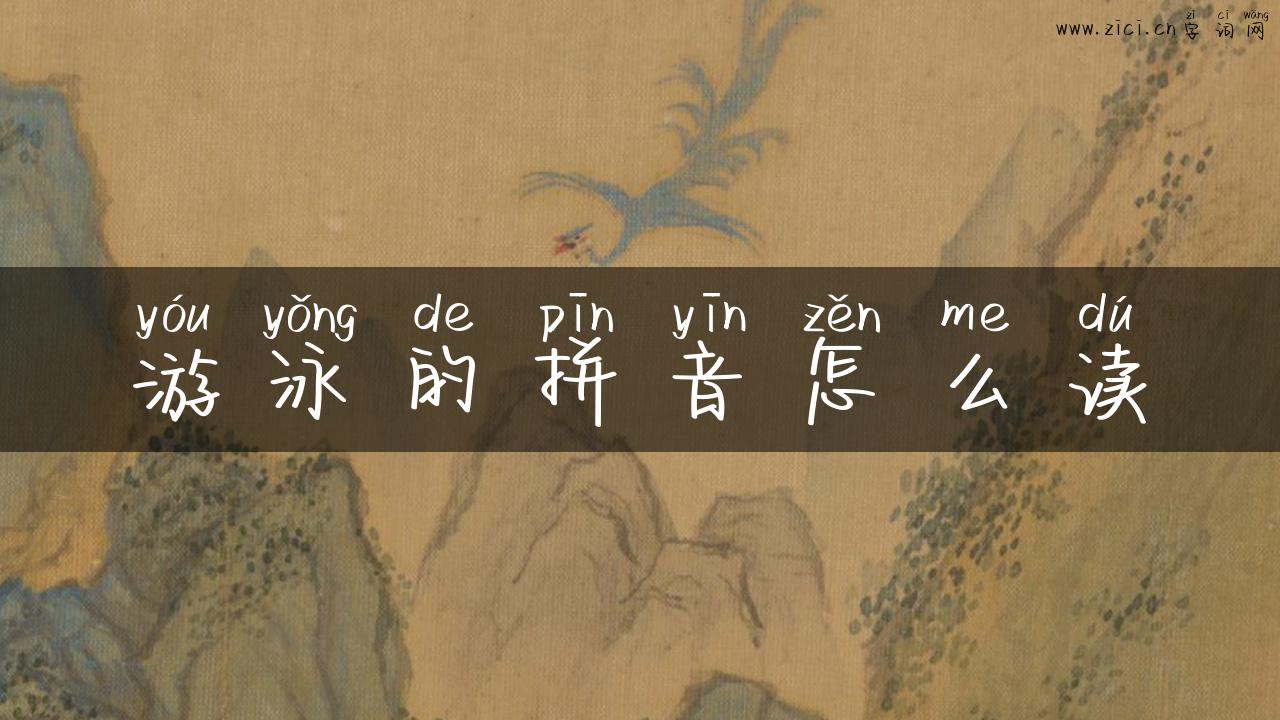 zì cí wǎng
www.zici.cn字词网
yóu yǒng de pīn yīn zěn me dú
游泳的拼音怎么读